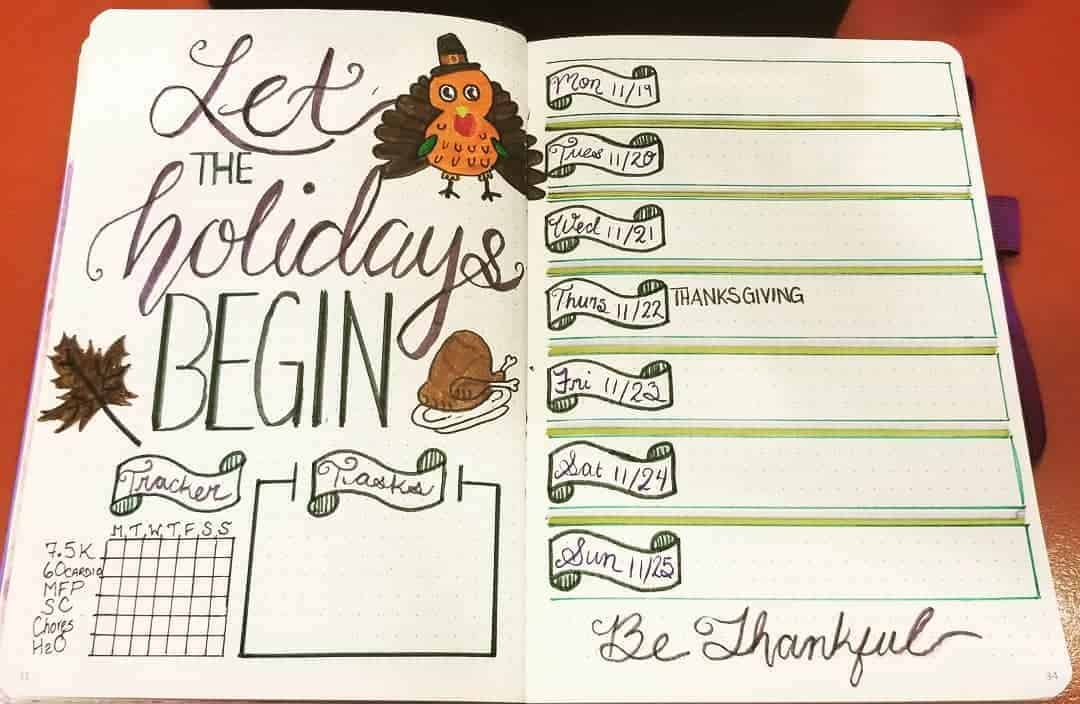 Let
THE
holidays
BEGIN
Tracker
M, T, W, T, F, S, S
7.5K
60CARDIO
MFP
SC
Chores
H2O
Tasks
Mon 11/19
Tues 11/20
Wed 11/21
Thurs 11/22 THANKSGIVING
Fri 11/23
Sat 11/24
Sun 11/25
Be Thankful
34